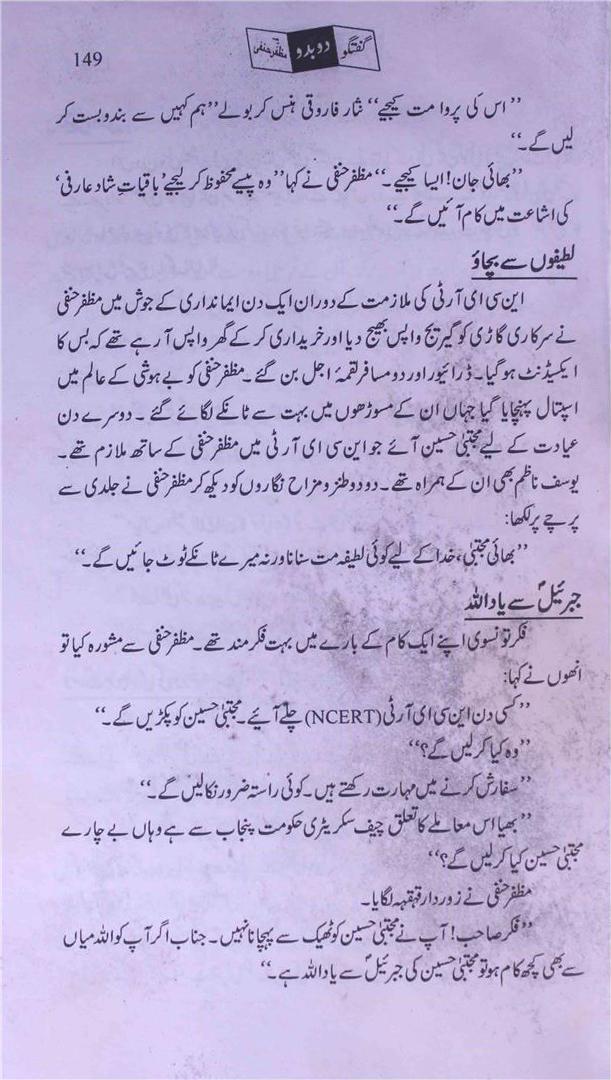 149
گفتگو دوبدو مظفر حنفی
”اس کی پروا مت کیجیے“ نثار فاروقی ہنس کر بولے ”ہم کہیں سے بندوبست کر
لیں گے۔“
”بھائی جان! ایسا کیجیے۔“ مظفر حنفی نے کہا ”وہ پیسے محفوظ کر لیجیے ’باقیاتِ شاد عارفی‘
کی اشاعت میں کام آئیں گے۔“
لطیفوں سے بچاؤ
این سی ای آر ٹی کی ملازمت کے دوران ایک دن ایمانداری کے جوش میں مظفر حنفی
نے سرکاری گاڑی کو گیریج واپس بھیج دیا اور خریداری کر کے گھر واپس آ رہے تھے کہ بس کا
ایکسیڈنٹ ہو گیا۔ ڈرائیور اور دو مسافر لقمۂ اجل بن گئے۔ مظفر حنفی کو بے ہوشی کے عالم میں
اسپتال پہنچایا گیا جہاں ان کے مسوڑھوں میں بہت سے ٹانکے لگائے گئے۔ دوسرے دن
عیادت کے لیے مجتبیٰ حسین آئے جو این سی ای آر ٹی میں مظفر حنفی کے ساتھ ملازم تھے۔
یوسف ناظم بھی ان کے ہمراہ تھے۔ دو دو طنز و مزاح نگاروں کو دیکھ کر مظفر حنفی نے جلدی سے
پرچے پر لکھا:
”بھائی مجتبیٰ، خدا کے لیے کوئی لطیفہ مت سنانا ورنہ میرے ٹانکے ٹوٹ جائیں گے۔“
جبرئیلؑ سے یاد اللہ
فکر تونسوی اپنے ایک کام کے بارے میں بہت فکر مند تھے۔ مظفر حنفی سے مشورہ کیا تو
انھوں نے کہا:
”کسی دن این سی ای آر ٹی (NCERT) چلے آئیے۔ مجتبیٰ حسین کو پکڑیں گے۔“
”وہ کیا کر لیں گے؟“
”سفارش کرنے میں مہارت رکھتے ہیں۔ کوئی راستہ ضرور نکالیں گے۔“
”بھیا اس معاملے کا تعلق چیف سکریٹری حکومت پنجاب سے ہے وہاں بے چارے
مجتبیٰ حسین کیا کر لیں گے؟“
مظفر حنفی نے زوردار قہقہہ لگایا۔
”فکر صاحب! آپ نے مجتبیٰ حسین کو ٹھیک سے پہچانا نہیں۔ جناب اگر آپ کو اللہ میاں
سے بھی کچھ کام ہو تو مجتبیٰ حسین کی جبرئیلؑ سے یاد اللہ ہے۔“